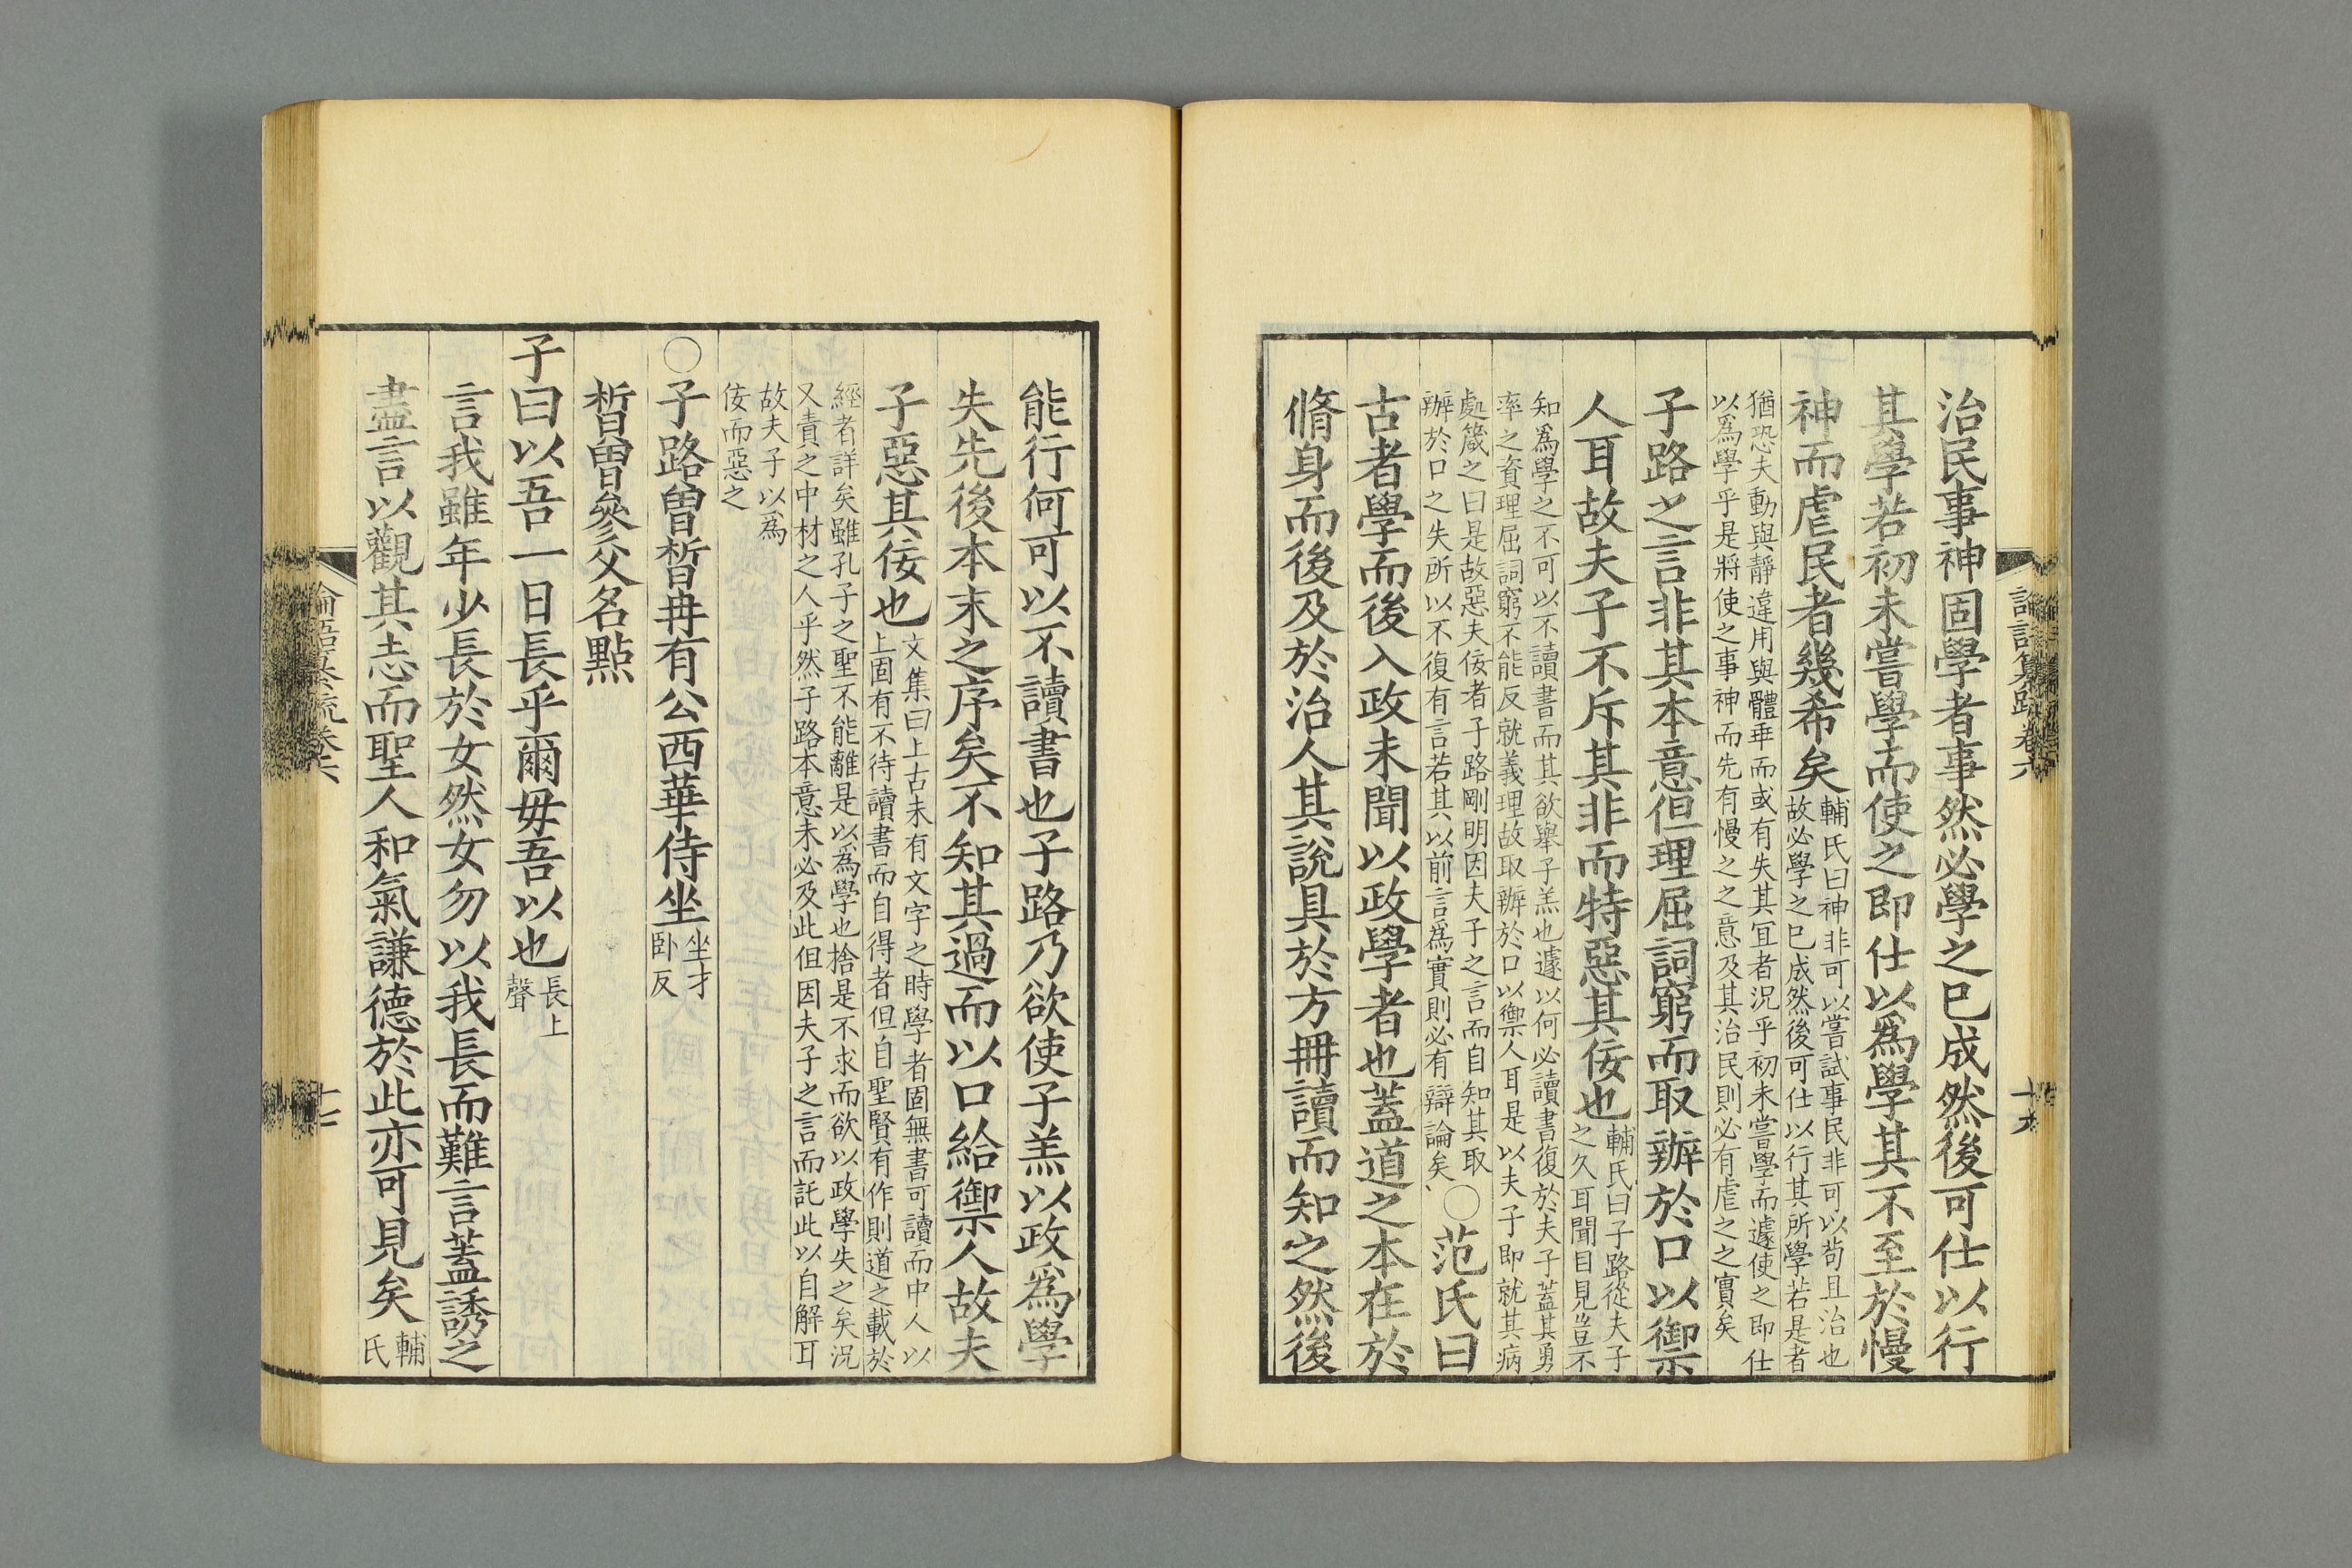 治民事神固學者事然必學之已成然後可仕以行
其學若初未嘗學而使之即仕以爲學其不至於慢
神而虐民者幾希矣
輔氏曰神非可以嘗試事民非可以苟且治也
故必學之已成然後可仕以行其所學若是者
猶恐夫動與靜違用與體乖而或有失其冝者況乎初未嘗學而遽使之即仕
以爲學乎是將使之事神而先有慢之之意及其治民則必有虐之之實矣
子路之言非其本意但理屈詞窮而取辦於口以禦
人耳故夫子不斥其非而特惡其佞也
輔氏曰子路從夫子
之久耳聞目見豈不
知爲學之不可以不讀書而其欲舉子羔也遽以何必讀書復於夫子蓋其勇
率之資理屈詞窮不能反就義理故取辦於口以禦人耳是以夫子即就其病
處箴之曰是故惡夫佞者子路剛明因夫子之言而自知其取
辦於口之失所以不復有言若其以前言爲實則必有辯論矣
○范氏曰
古者學而後入政未聞以政學者也蓋道之本在於
脩身而後及於治人其說具於方冊讀而知之然後
能行何可以不讀書也子路乃欲使子羔以政爲學
失先後本末之序矣不知其過而以口給禦人故夫
子惡其佞也
文集曰上古未有文字之時學者固無書可讀而中人以
上固有不待讀書而自得者但自聖賢有作則道之載於
經者詳矣雖孔子之聖不能離是以爲學也捨是不求而欲以政學失之矣況
又責之中材之人乎然子路本意未必及此但因夫子之言而託此以自解耳
故夫子以爲
佞而惡之
○子路曾晳冉有公西華侍坐
坐才
卧反
晳曾參父名點
子曰以吾一日長乎爾毋吾以也
長上
聲
言我雖年少長於女然女勿以我長而難言蓋誘之
盡言以觀其志而聖人和氣謙德於此亦可見矣
輔
氏
論語纂疏卷六
十七